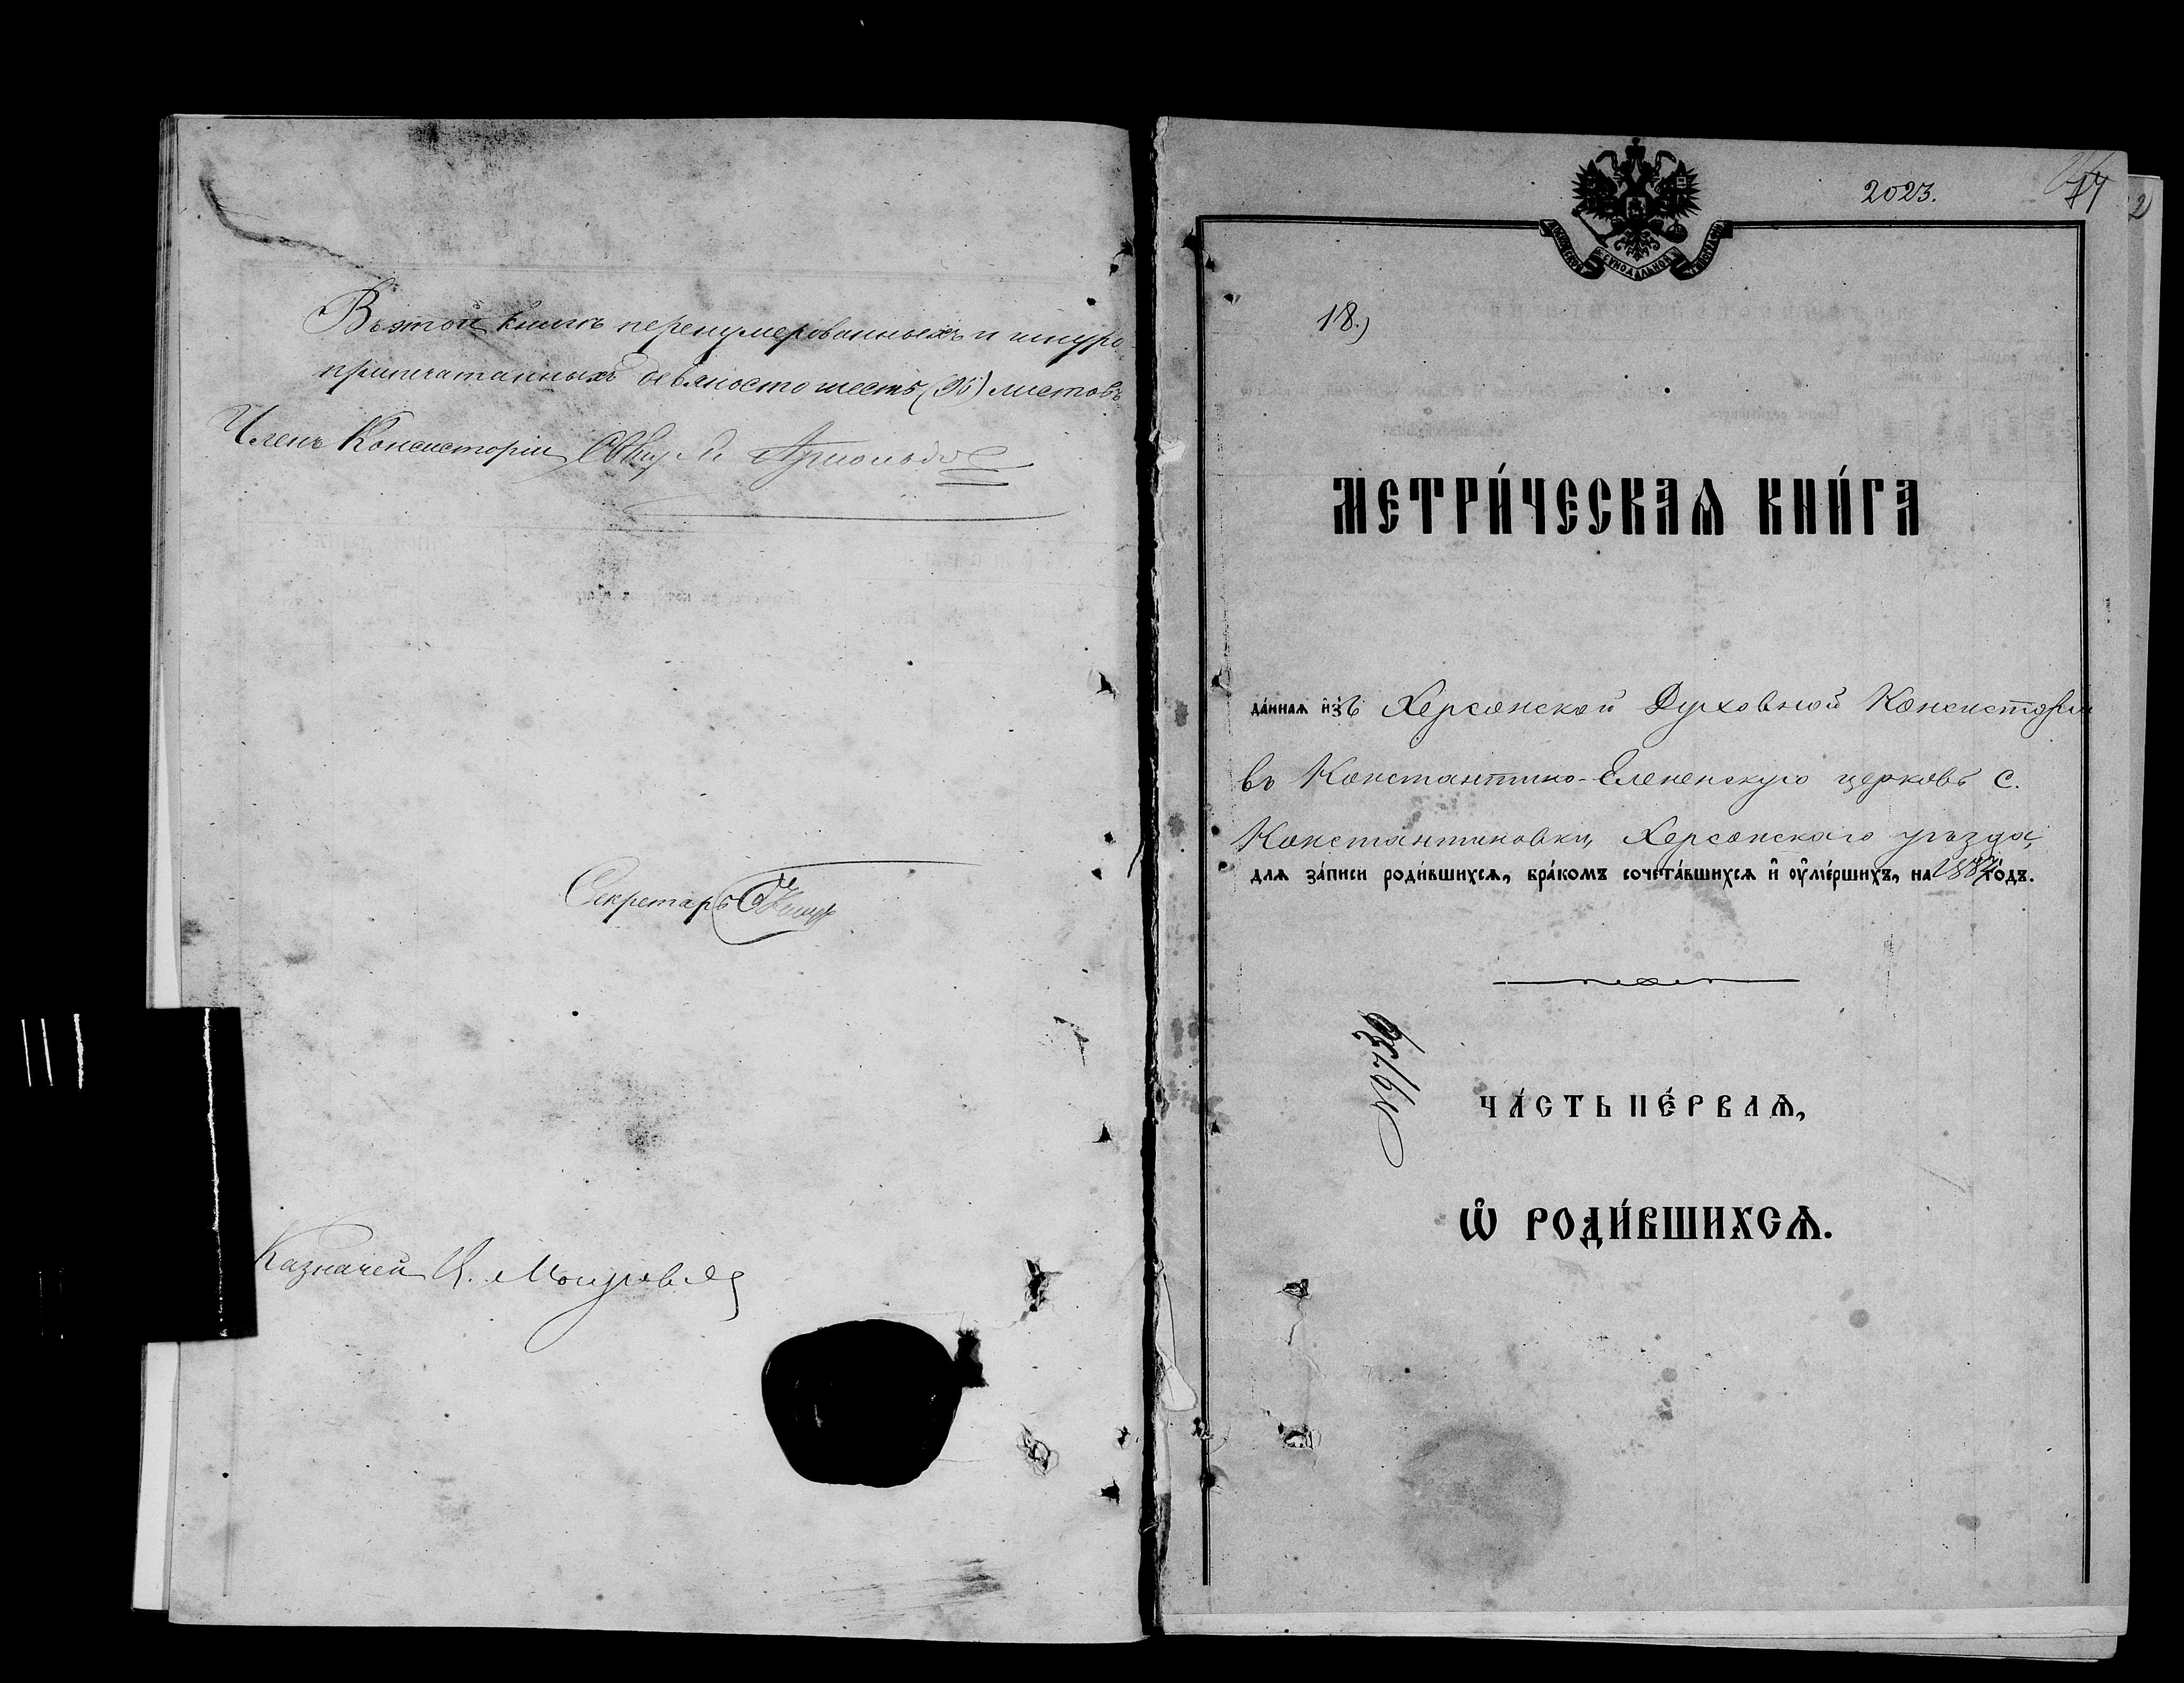 Въ этой книгѣ перенумерованныхъ и шнуро-
припечатанныхъ девяносто шесть (96) листовъ
Членъ Консисторіи
Секретарь
Казначей
2023.
18.)
МОСКОВСКОЙ СѴНОДАЛЬНОЙ ТИПОГРАФІИ
МЕТРИ́ЧЕСКАѦ КНИ́ГА
да́ннаѧ и҆зъ Херсонской Духовной Консисторіи
въ Константино-Еленинскую церковь с.
Константиновки, Херсонскаго уѣзда,
для за́писи роди́вшихсѧ, бра́комъ сочета́вшихсѧ и҆ ᲂу҆ме́ршихъ, на го́дъ.
№ 6739
ЧА́СТЬ ПЕ́РВАѦ,
Ѽ РОДИ́ВШИХСѦ.